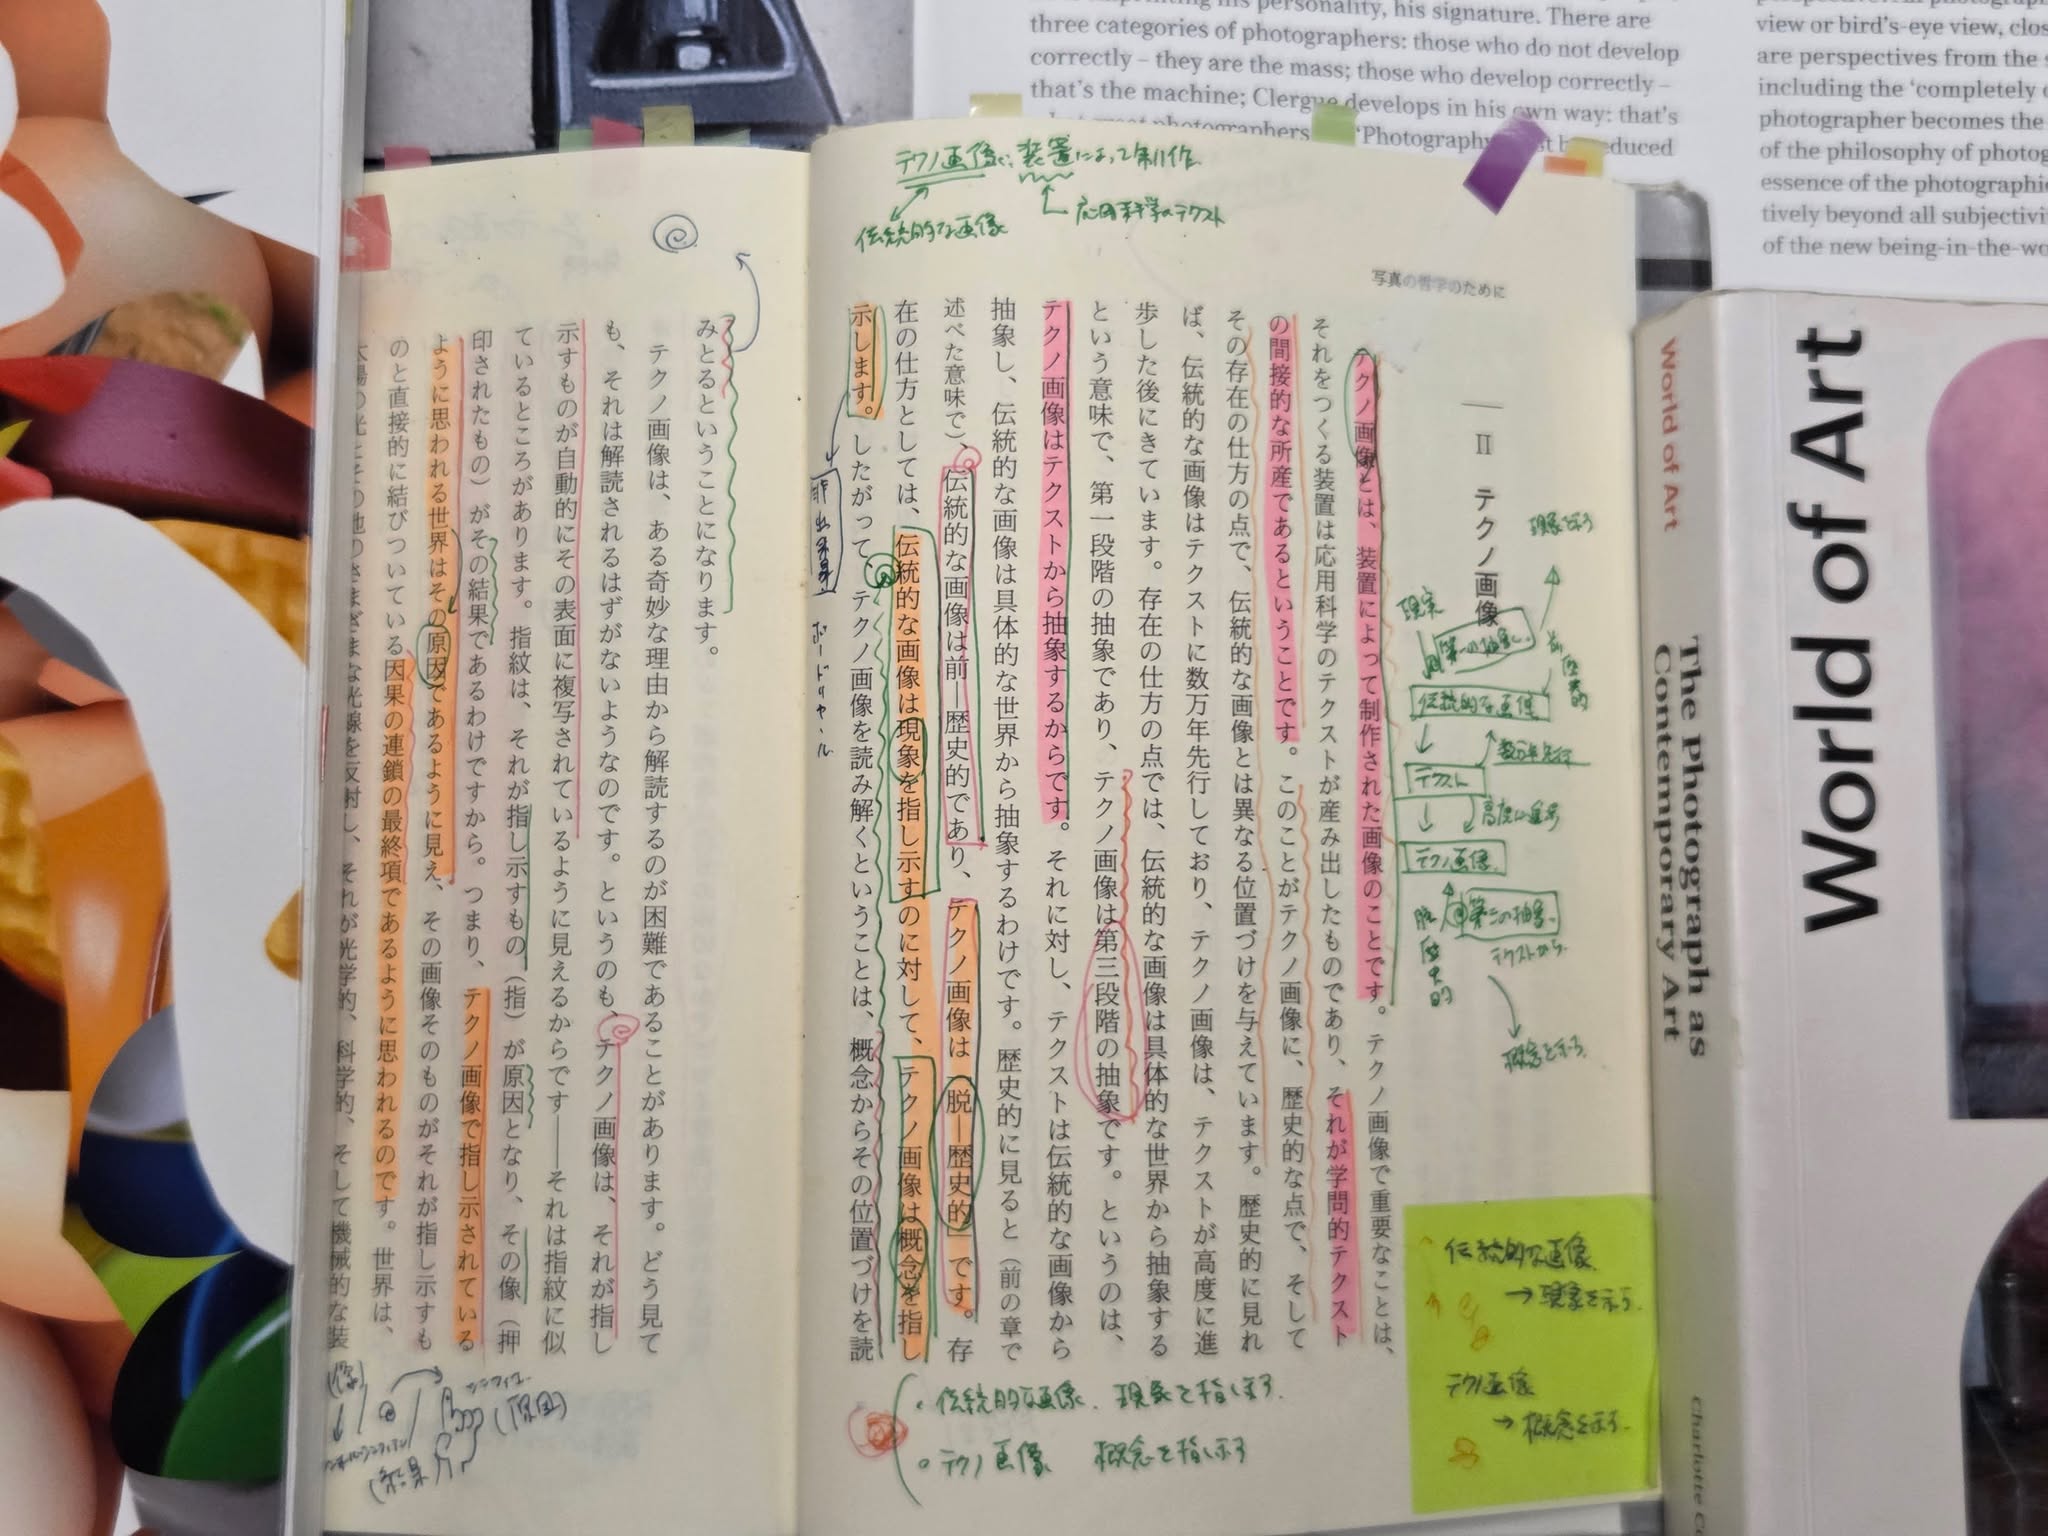 three categories of photographers: those who do not develop
correctly – they are the mass; those who develop correctly –
that's the machine; Clergue develops in his own way: that's
view or bird's-eye view, clos
are perspectives from the s
including the 'completely
photographer becomes the
of the philosophy of photog
essence of the photographi
tively beyond all subjectivi
of the new being-in-the-wo
テクノ画像は、装置によって制作
伝統的な画像
応用科学のテクスト
写真の哲学のために
II テクノ画像
テクノ画像とは、装置によって制作された画像のことです。テクノ画像で重要なことは、
それをつくる装置は応用科学のテクストが産み出したものであり、それが学問的テクスト
の間接的な所産であるということです。このことがテクノ画像に、歴史的な点で、そして
その存在の仕方の点で、伝統的な画像とは異なる位置づけを与えています。歴史的に見れ
ば、伝統的な画像はテクストに数万年先行しており、テクノ画像は、テクストが高度に進
歩した後にきています。存在の仕方の点では、伝統的な画像は具体的な世界から抽象する
という意味で、第一段階の抽象であり、テクノ画像は第三段階の抽象です。というのは、
テクノ画像はテクストから抽象するからです。それに対し、テクストは伝統的な画像から
抽象し、伝統的な画像は具体的な世界から抽象するわけです。歴史的に見ると（前の章で
述べた意味で）、伝統的な画像は前―歴史的であり、テクノ画像は「脱―歴史的」です。存
在の仕方としては、伝統的な画像は現象を指し示すのに対して、テクノ画像は概念を指し
示します。したがって、テクノ画像を読み解くということは、概念からその位置づけを読
現象を示す
現実
伝統的な画像
数万年先行
テクスト
テクノ画像
第三の抽象
テクストから
脱歴史的
概念を示す
ボードリヤール
・伝統的な画像 現象を指し示す
・テクノ画像 概念を指し示す
伝統的な画像
→現象を示す
テクノ画像
→概念を示す
みとるということになります。
テクノ画像は、ある奇妙な理由から解読するのが困難であることがあります。どう見て
も、それは解読されるはずがないようなのです。というのも、テクノ画像は、それが指し
示すものが自動的にその表面に複写されているように見えるからです――それは指紋に似
ているところがあります。指紋は、それが指し示すもの（指）が原因となり、その像（押
印されたもの）がその結果であるわけですから。つまり、テクノ画像で指し示されている
ように思われる世界はその原因であるように見え、その画像そのものがそれが指し示すも
のと直接的に結びついている因果の連鎖の最終項であるように思われるのです。世界は、
太陽の光とその他のさまざまな光線を反射し、それが光学的、科学的、そして機械的な装
(像)
(原因)
(結果)
World of Art
The Photograph as
Contemporary Art
World of Art